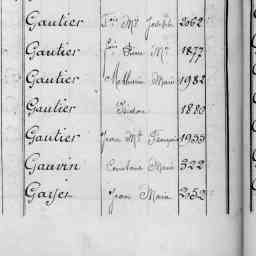 Gautier Fois Me Joseph 2062
Gautier Jean Me 1877
Gautier Mathurin Marie 1982
Gautier Isidore 1880
Gautier Jean Me François 1955
Gauvin Constant Marie 322
Gayet Jean Marie 252